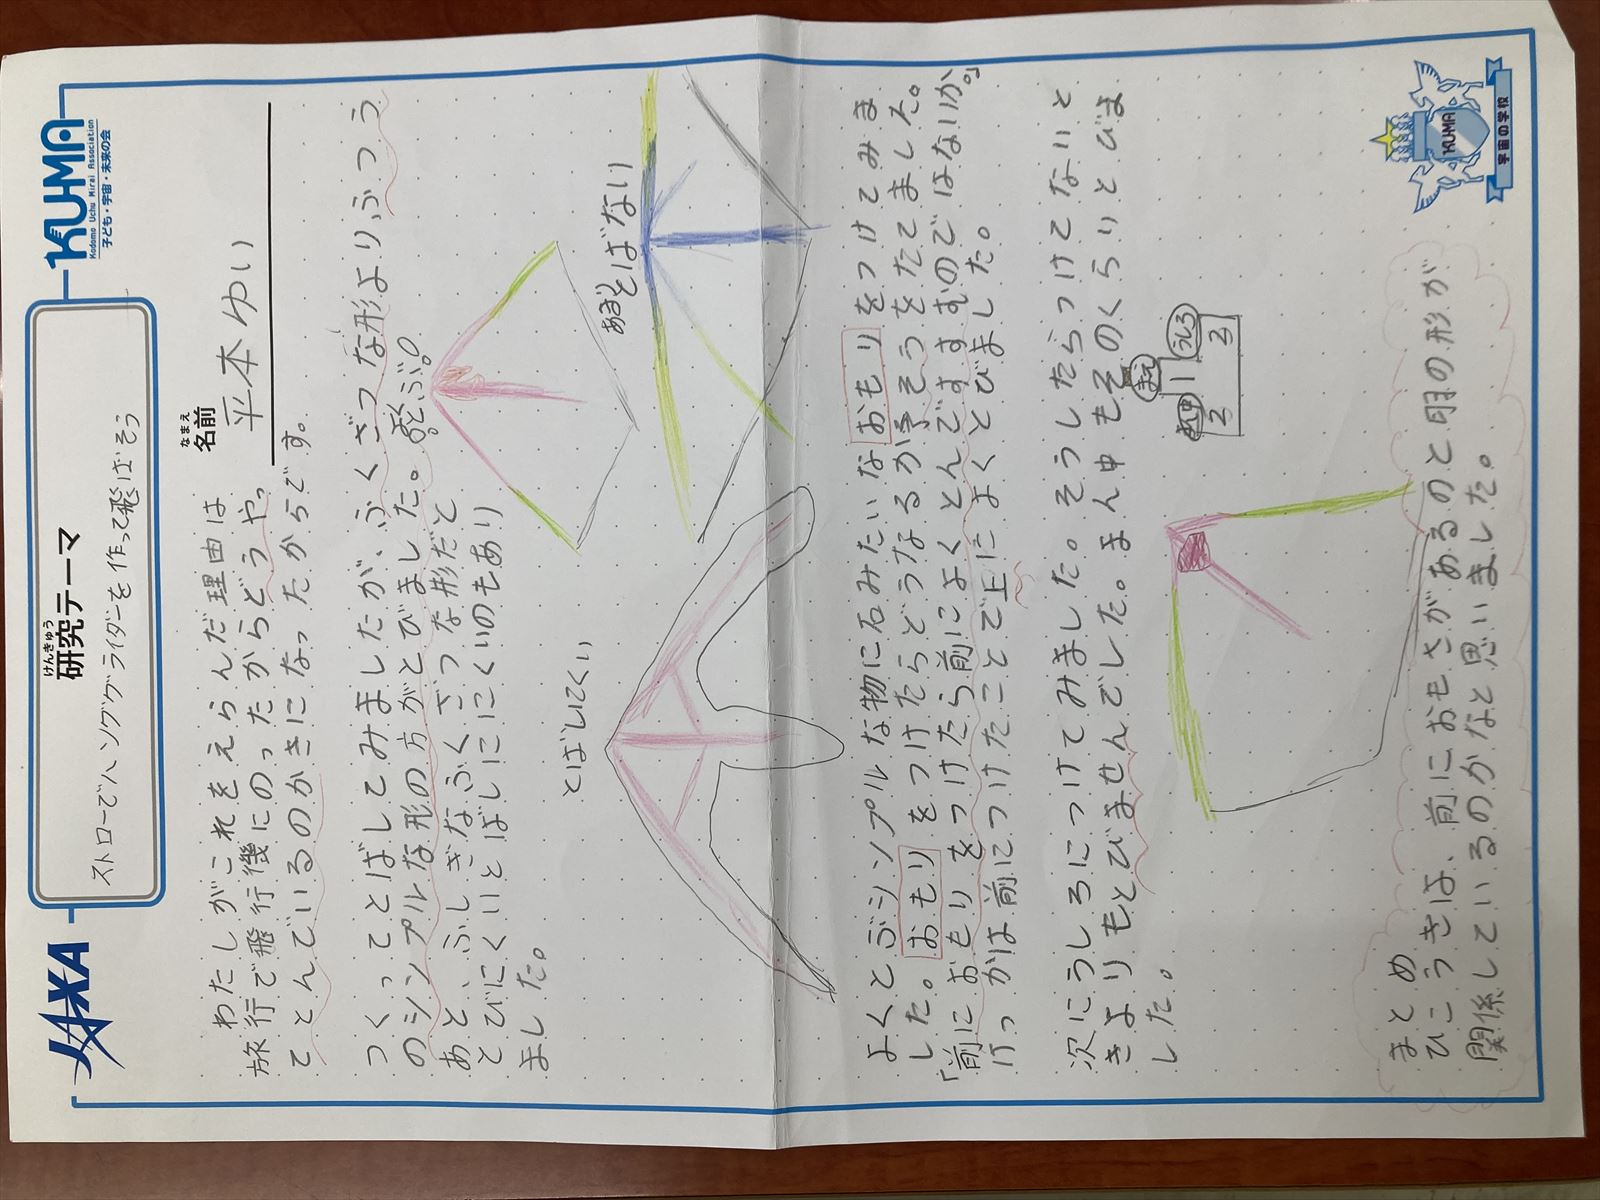 JAXA
けんきゅう
研究テーマ
ストローでハンググライダーを作って飛ばそう
KUMA
Kodomo Uchu Mirai Association
子ども・宇宙・未来の会
なまえ
名前
平本ゆい
わたしがこれをえらんだ理由は
旅行で飛行機にのったからどうやっ
てとんでいるのかきになったからです。
つくってとばしてみましたが、ふくざつな形よりふつう
のシンプルな形の方がとびました。
あと、ふしぎなふくざつな形だと
とびにくいとばしにくいのもあり
ました。
とばしにくい
あまり
とばない
よくとぶシンプルな物に石みたいなおもりをつけてみま
した。おもりをつけたらどうなるか予そうをたてました。
「前におもりをつけたら前によくとんですすむのではないか。」
けっかは前につけたことで上によくとびました。
次にこうしろにつけてみました。そうしたらつけてないと
きよりもとびませんでした。まん中もそのくらいとびま
した。
まえ
まん中
うしろ
1
2
3
まとめ
ひこうきは、前におもさがあるのと羽の形が
関係しているのかなと思いました。
KUMA
宇宙の学校